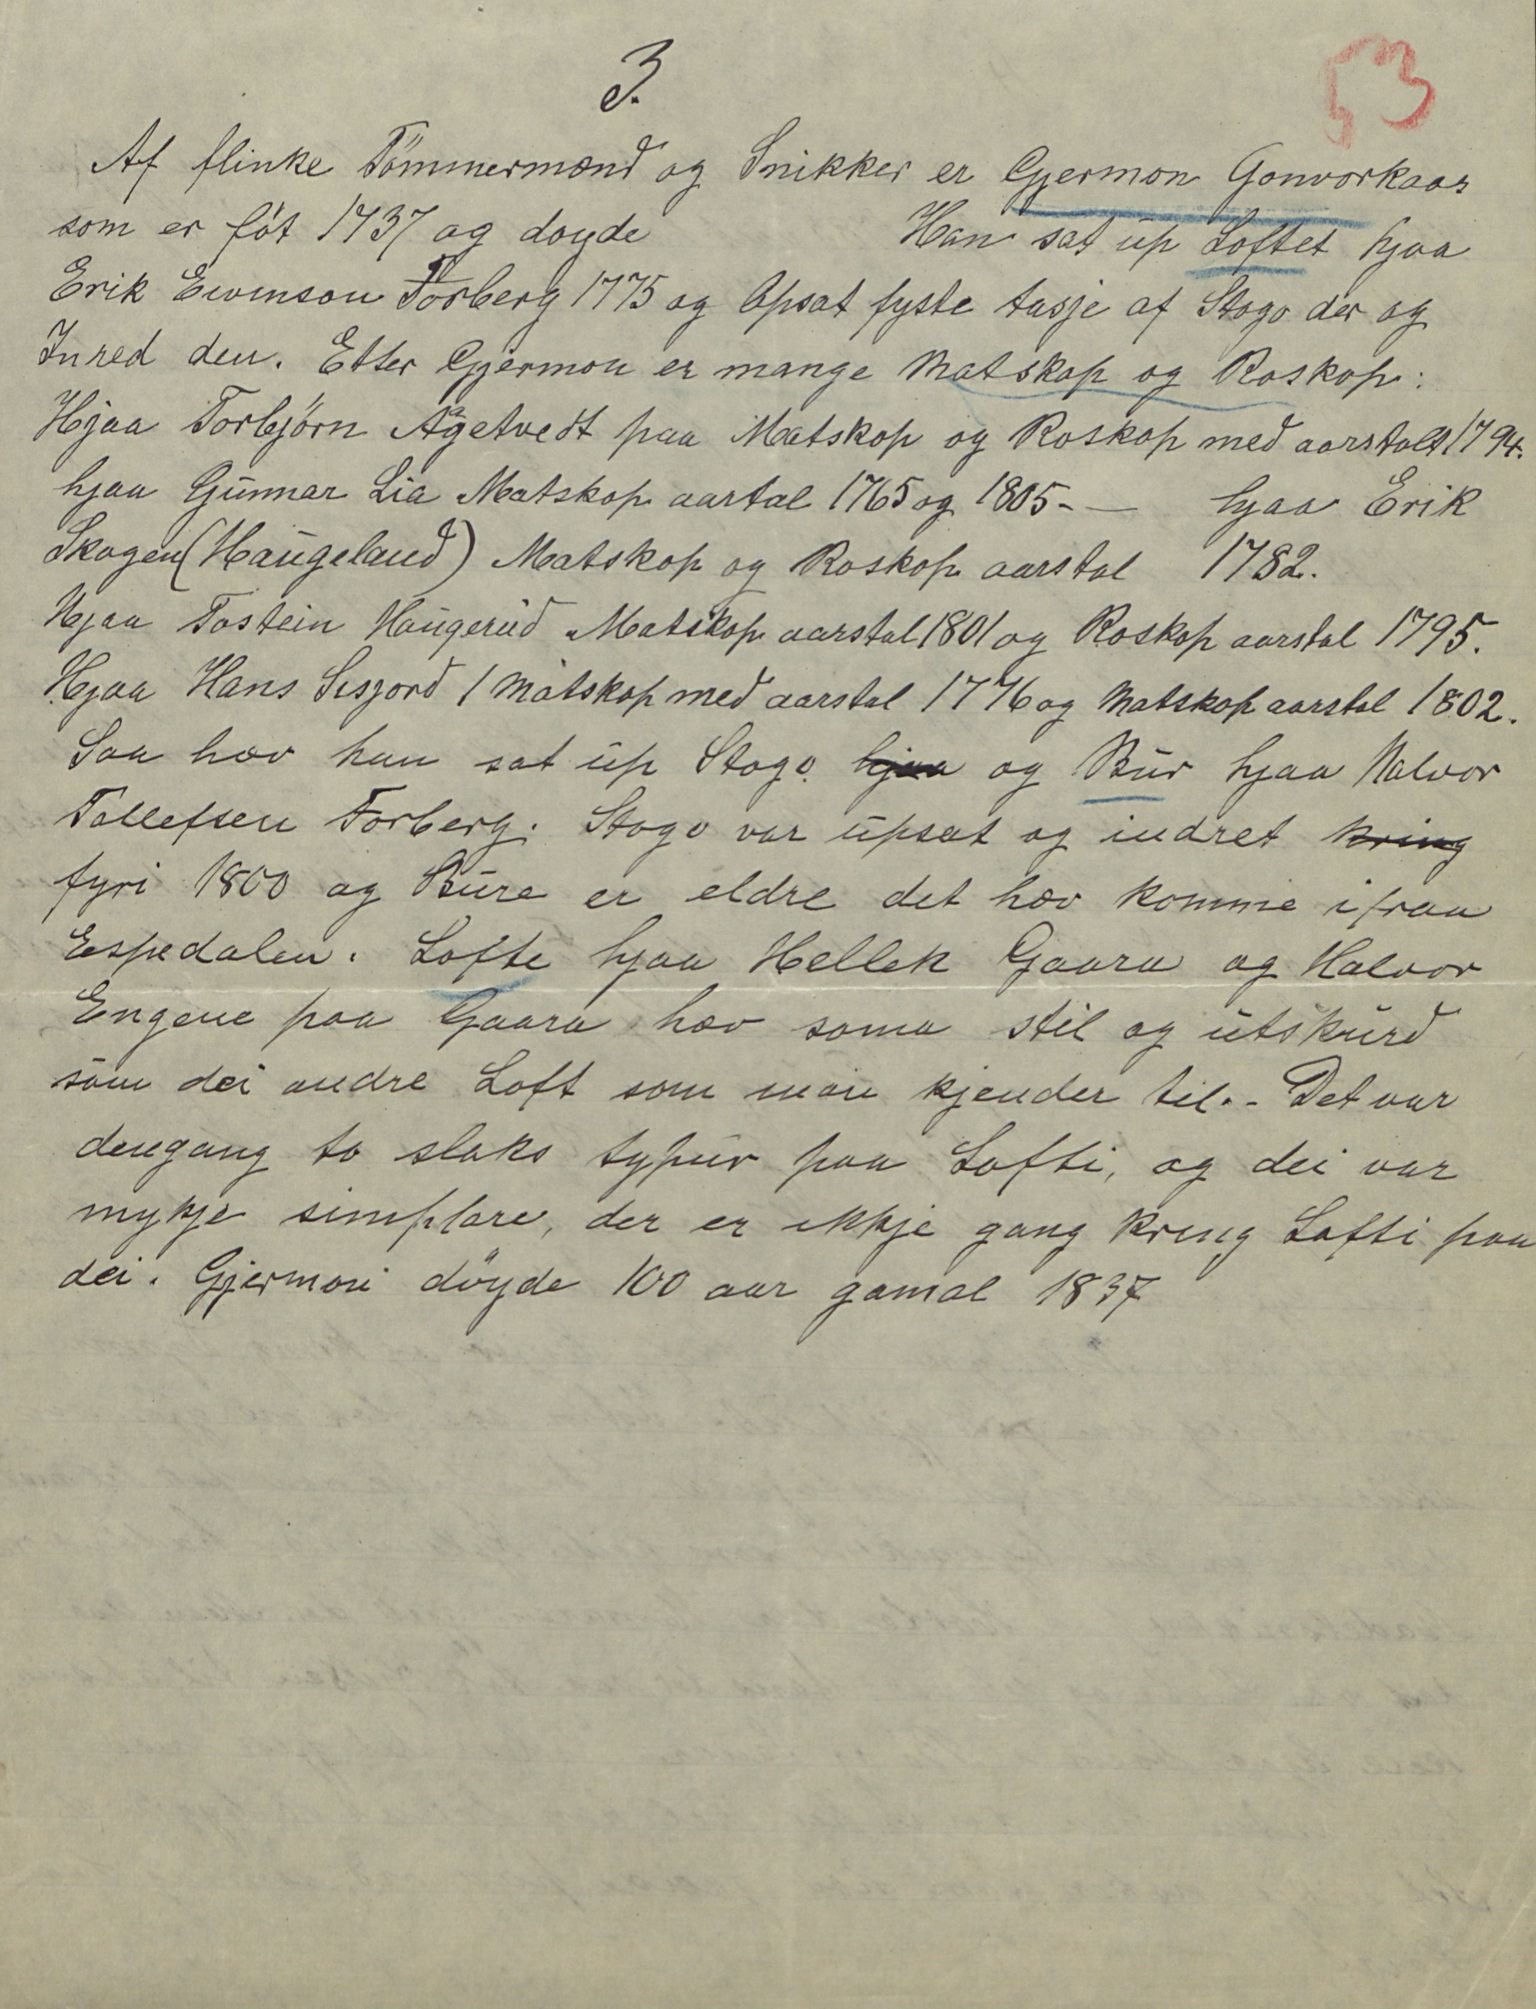 3.
53
Af flinke Tömmermænd og Snikker er Gjermon Gonvorkaas
som er föt 1737 og doyde Han sat up Loftet hjaa
Erik Evinson Torberg 1775 og Opsat fyste tasje af Stogo der og
Inred den. Etter Gjermon er mange Matskap og Roskop:
Hjaa Torbjörn Ågetvedt paa Matskop og Roskop med aarstalt 1794.
hjaa Gunnar Lia Matskop aartal 1765 og 1805 - — hjaa Erik
Skogen (Haugeland) Matskop og Roskop aarstal 1782.
Hjaa Tostein Haugerud Matskop aarstal 1801 og Roskop aarstal 1795.
Hjaa Hans Sisjord 1 Matskop med aarstal 1776 og Matskop aarstal 1802.
Saa hæv han sat up Stogo hjaa og Bur hjaa Halvor
Tollefsen Forberg. Stogo var upsat og indret kring
fyri 1800 og Bure er eldre det hæv komme ifraa
Espedalen. Lofte hjaa Hellek Gaara og Halvor
Engene paa Gaara hæv soma stil og utskurd
som dei andre Loft som man kjender til. - Det var
dengang to slaks typur paa Lofti, og dei var
mykje simplare, der er ikkje gang kring Lofti paa
dei. Gjermon döyde 100 aar gamal 1837